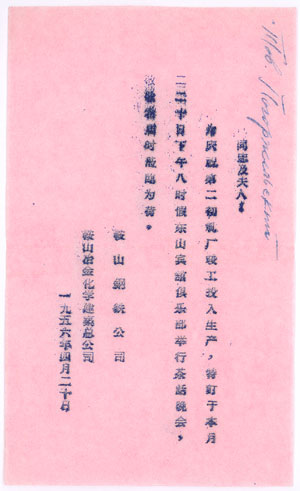 Тов.
同志及夫人：
为庆祝第二初轧厂竣工投入生产，特订于本月
二十日下午八时假东山宾馆俱乐部举行茶話晚会，
届时蒞临为荷。
鞍山鋼鉄公司
鞍山冶金化学建築总公司
一九五六年四月二十日